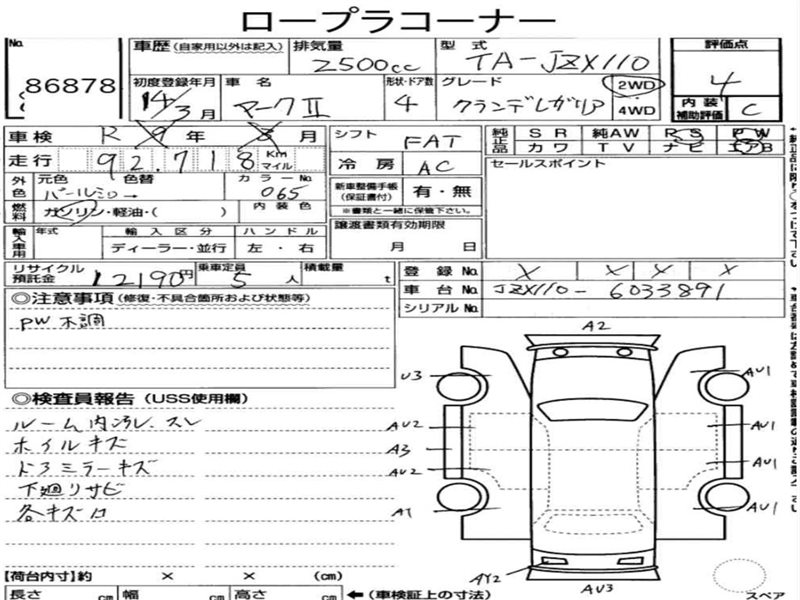 ロープラコーナー
No. 86878
車歴 (自家用以外は記入) 排気量 2500cc 型式 TA-JZX110 評価点 4
初度登録年月 14/3月 車名 マークⅡ 形状・ドア数 4 グレード グランデレガリア 2WD・4WD 内装補助評価 C
車検 R 年 月 シフト FAT 純正品 SR 純AW PS PW
カワ TV ナビ エアB
走行 92,718 Km マイル 冷房 AC セールスポイント
外色 元色 色替 カラーNo. 065
パールシロ→
新車整備手帳(保証書付) 有・無
※書類と一緒に保管下さい。
燃料 ガソリン・軽油・( ) 内装色
輸入車用 年式 輸入区分 ハンドル 譲渡書類有効期限
ディーラー・並行 左・右 月 日
リサイクル預託金 12190円 乗車定員 5人 積載量 t 登録No. X X X X
車台No. JZX110-6033891
シリアルNo.
◎注意事項 (修復・不具合箇所および状態等)
PW不調
◎検査員報告 (USS使用欄)
ルーム内汚レ、スレ
ホイルキズ
ドアミラーキズ
下廻リサビ
各キズ凹
A2
U3 AU1
AU2 AU1
A3
AU2 AU1
A1 AU1
AY2 AU3
スペア
【荷台内寸】約 × × (cm)
長さ cm 幅 cm 高さ cm ←(車検証上の寸法)